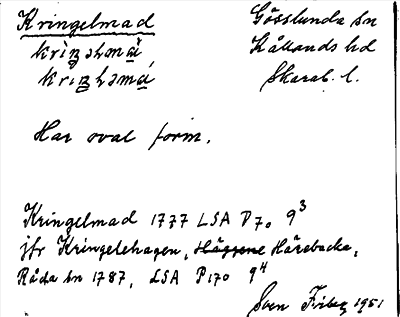 Kringelmad Gösslunda sn
Kållands hd
Skarab. l.
Har oval form.
Kringelmad 1777 LSA P70 9³
jfr Kringelehagen, Häggene Härebacka,
Råda sn 1787, LSA P170 9⁴
Sven Friberg 1951